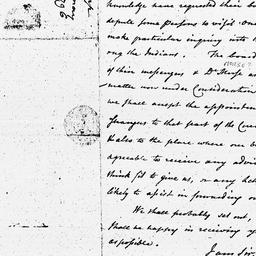 knowledge have requested their b
depute some Persons to visit On
make particular inquiry into t
ong the Indians. The Soci
of their messengers & Dr
matter now under Consideration
we shall accept the appointmen
to that part of the Coun
to the place where our b
agreable to receive any advi
think fit to give us, or any let
likely to assist in forwarding ou
We shall probably set out,
shall be happy in receiving y
as possible.
I am Sir